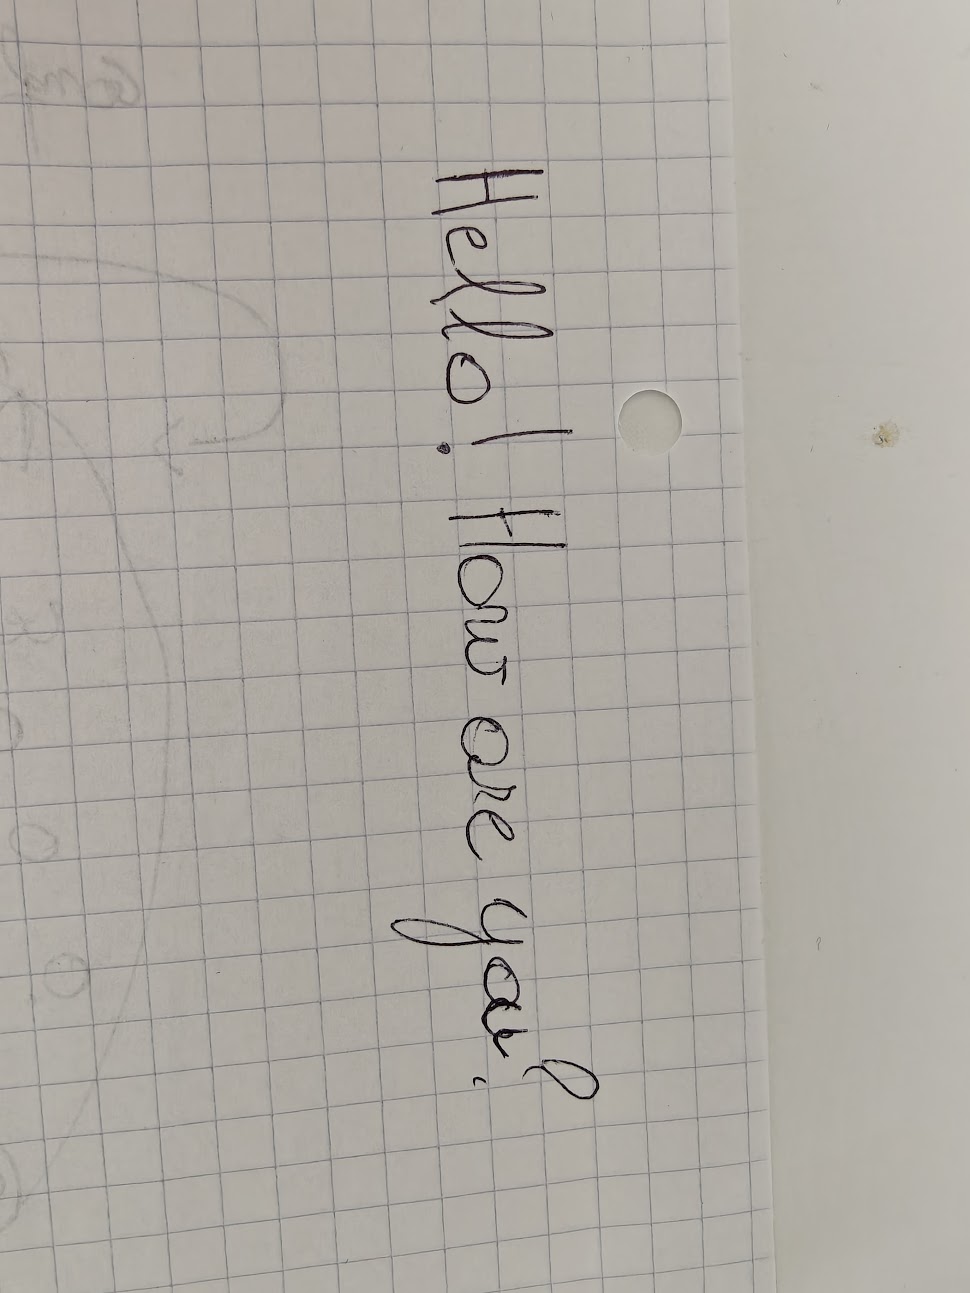 Hello! How are you?